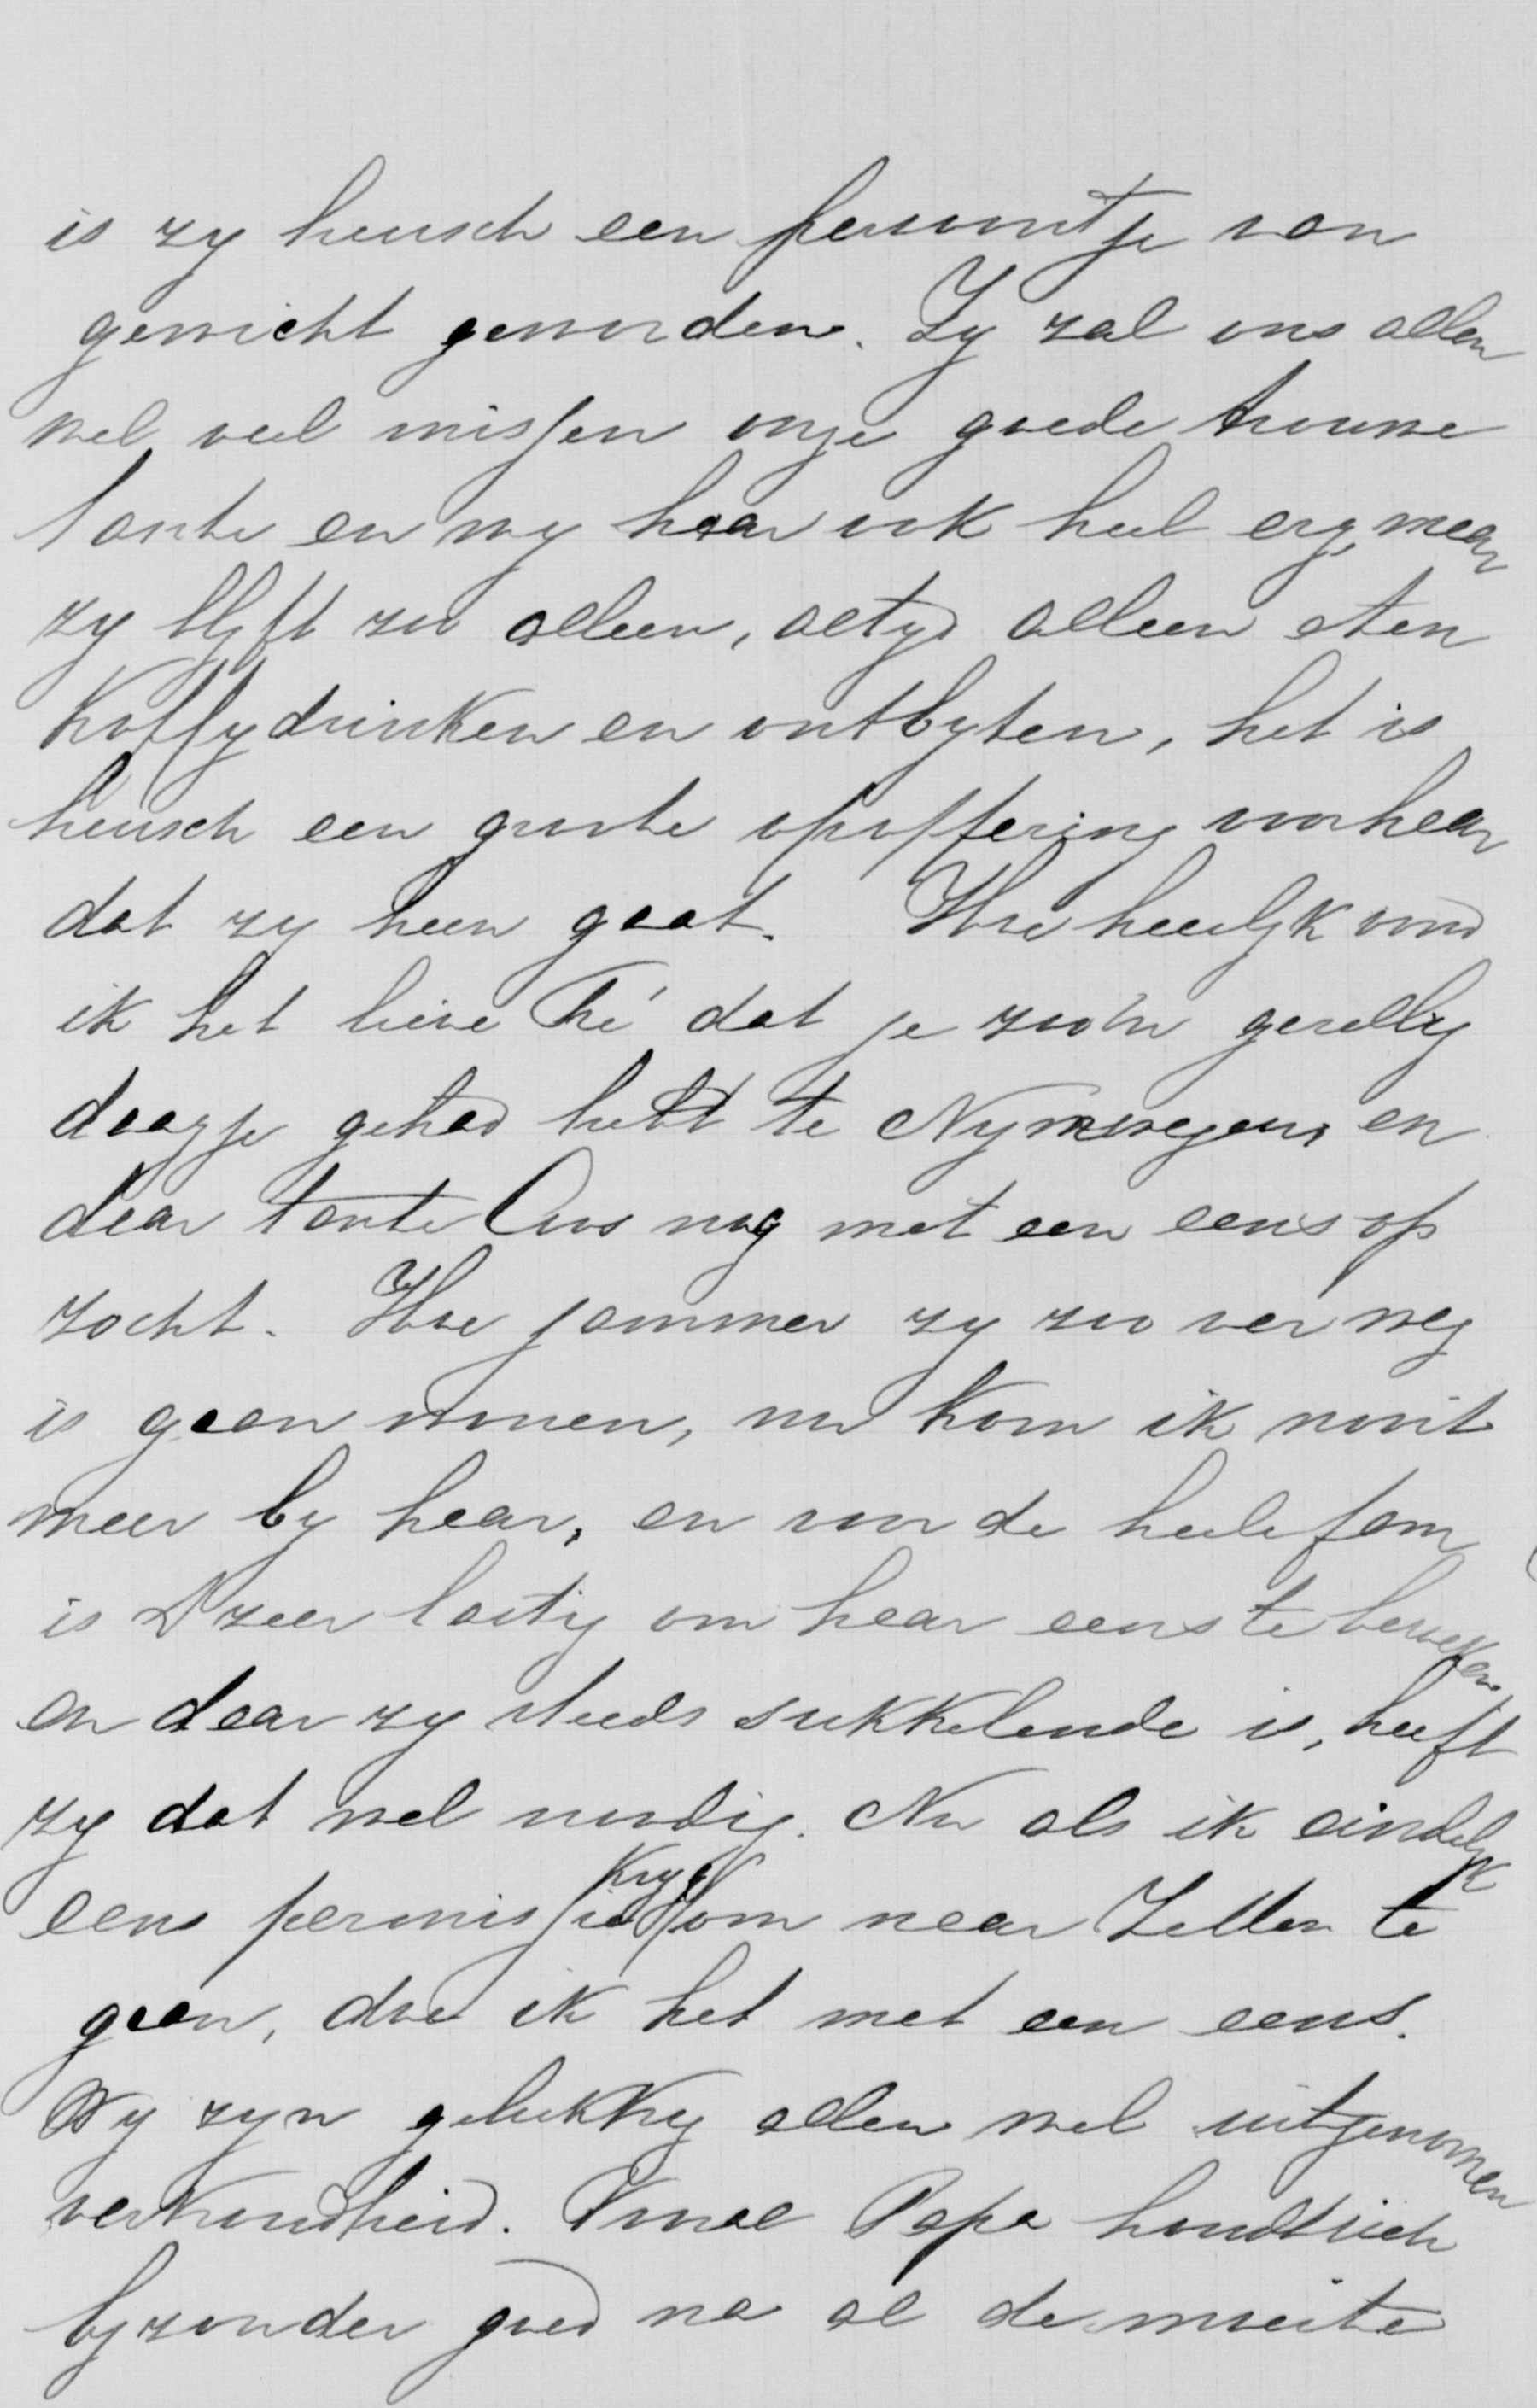 is zy heusch een persoontje van
gewicht geworden. Zy zal ons allen
wel veel missen onze goede trouwe
tante en wy haar ook heel erg, maar
zy blyft zoo alleen, altyd alleen eten
Koffydrinken en ontbyten, het is
heusch een groote opoffering voor haar
dat zy heen gaat. Hoe heerlyk vond
ik het lieve Thé dat je zoo'n gezellig
daagje gehad hebt te Nymwegen, en
daar tante Cos nog met een eens op
zocht. Hoe jammer zy zoo ver weg
is gaan wonen, nu kom ik nooit
meer by haar, en voor de heele fam
is 't zeer lastig om haar eens te bezoeken
en daar zy steeds sukkelende is, heeft
zy dat wel noodig. Nu als ik eindelyk
eens permissie kryg om naar Zetten te
gaan, doe ik het met een eens.
Wy zyn gelukkig allen wel uitgenomen
verkoudheid. Vooral Papa houdt zich
byzonder goed na al de moeite